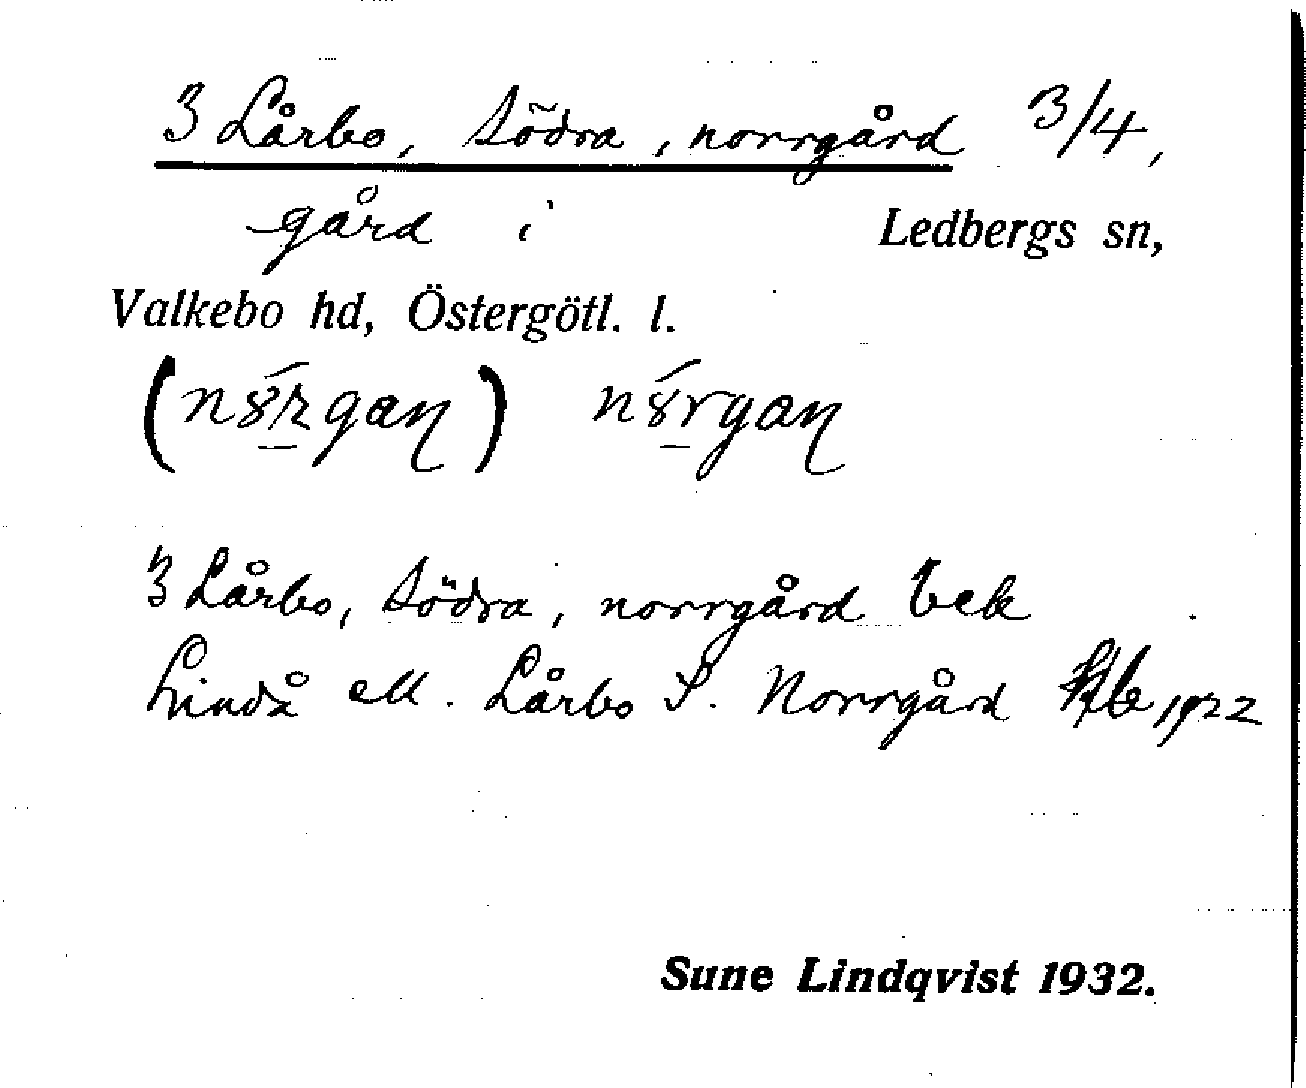 3 Lårbo, södra, norrgård 3/4,
gård i Ledbergs sn,
Valkebo hd, Östergötl. l.
3 Lårbo, södra, norrgård bek
Lindå ell. Lårbo S. Norrgård 1922
Sune Lindqvist 1932.